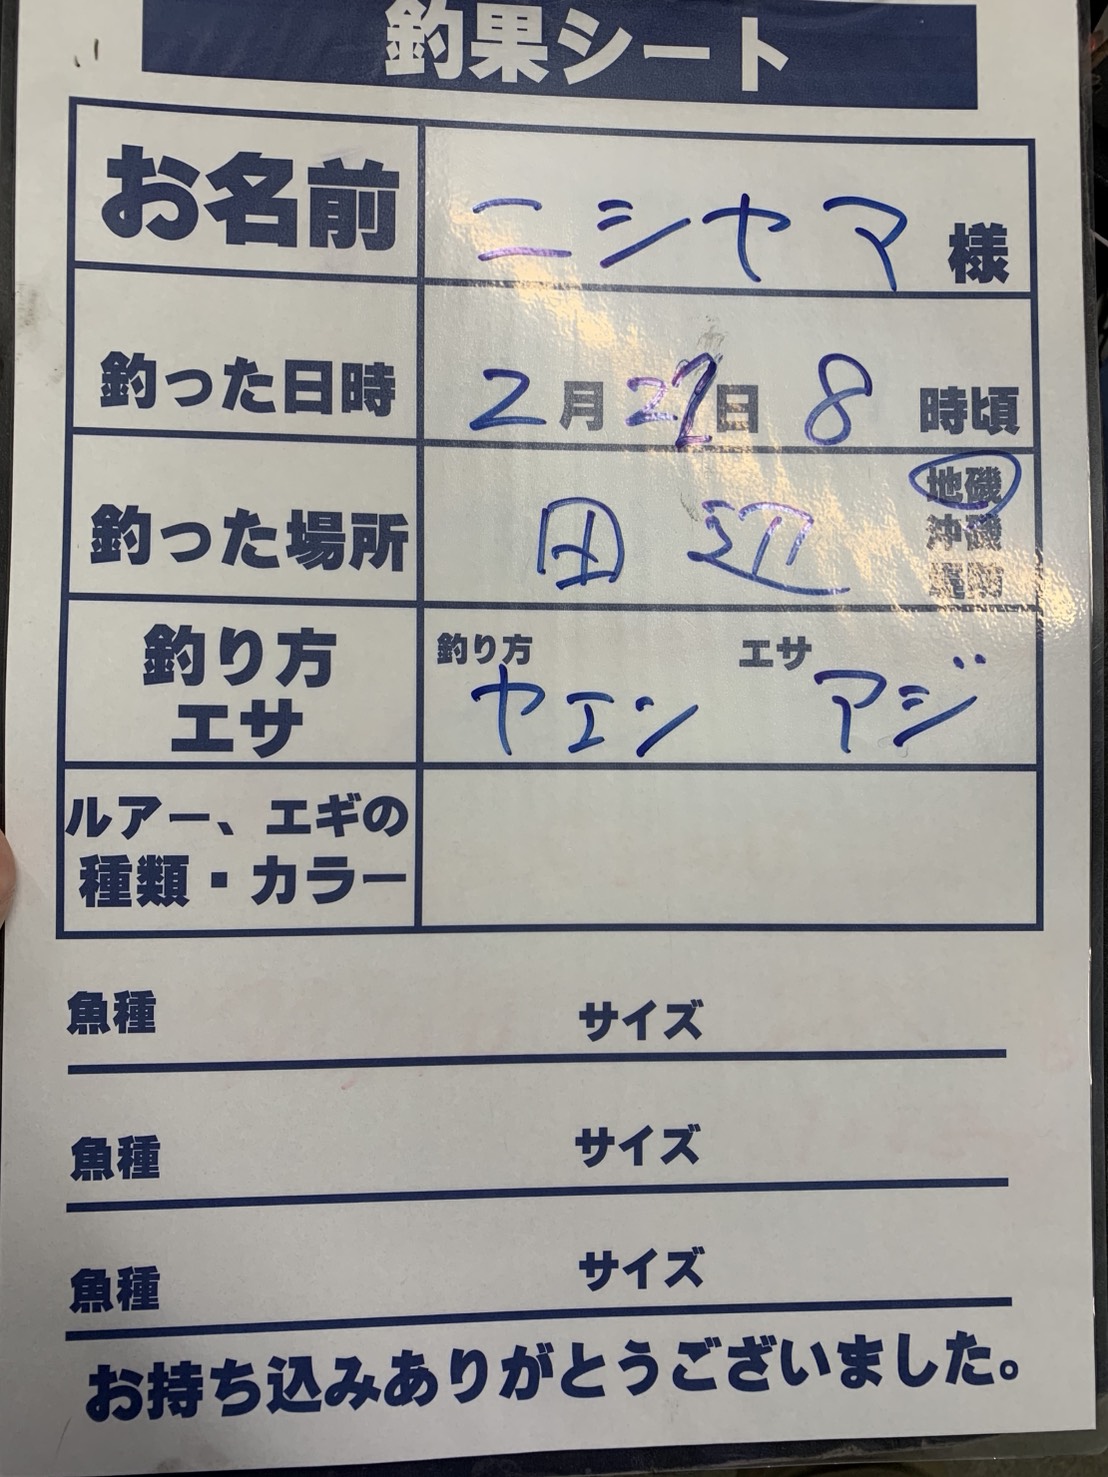 釣果シート
お名前 ニシヤマ 様
釣った日時 2月27日 8時頃
釣った場所 田辺 地磯
沖磯
堤防
釣り方
エサ
釣り方 エサ
ヤエン アジ
ルアー、エギの
種類・カラー
魚種 サイズ
魚種 サイズ
魚種 サイズ
お持ち込みありがとうございました。